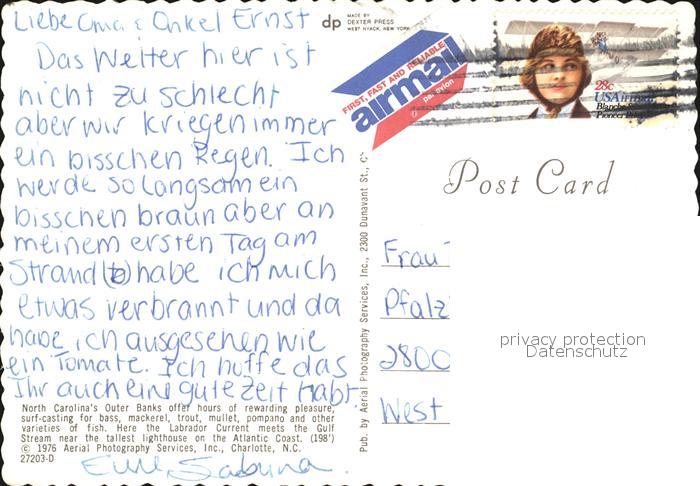 Liebe Oma & Onkel Ernst
Das Wetter hier ist
nicht zu schlecht
aber wir kriegen immer
ein bisschen Regen. Ich
werde so langsam ein
bisschen braun aber an
meinem ersten Tag am
Strand habe ich mich
etwas verbrannt und da
habe ich ausgesehen wie
ein Tomate. Ich hoffe das
Ihr auch eine gute Zeit habt.
North Carolina's Outer Banks offer hours of rewarding pleasure,
surf-casting for bass, mackerel, trout, mullet, pompano and other
varieties of fish. Here the Labrador Current meets the Gulf
Stream near the tallest lighthouse on the Atlantic Coast. (198')
© 1976 Aerial Photography Services, Inc., Charlotte, N.C.
27203-D
Eure Sabrina.
dp
MADE BY
DEXTER PRESS
WEST NYACK, NEW YORK
Pub. by Aerial Photography Services, Inc., 2300 Dunavant St., C
FIRST, FAST AND RELIABLE
airmail
par avion
28c
USAirmail
Blanche
Pioneer
Post Card
Frau
Pfalz
2800
West
privacy protection
Datenschutz